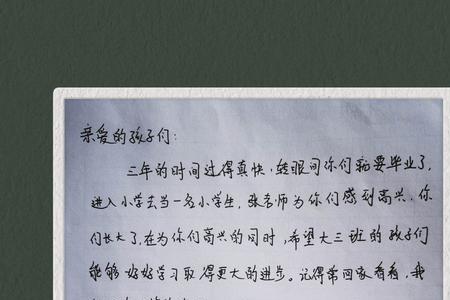 亲爱的孩子们：
三年的时间过得真快，转眼间你们就要毕业了，
进入小学去当一名小学生，张老师为你们感到高兴，你
们长大了，在为你们高兴的同时，希望大三班的孩子们
能够好好学习取得更大的进步。记得常回家看看，我